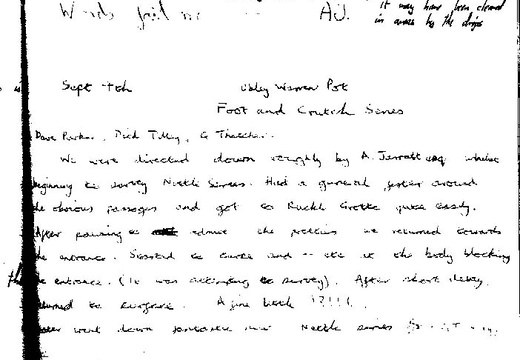 Words fail me A.J.
it may have been cleared
in areas by the drips
Sept 4th Ubley Warren Pot
Foot and Crutch Series
Dave Parker, Dick Tilley, G Thatcher.
We were directed down roughly by A. Jarratt esq. whilst
beginning to survey Nettle Series. Had a general poster around
the obvious passages and got to Ruckle Grotto quite easily.
After pausing to admire the pretties we returned towards
the entrance. Started to curse and at the body blocking
the entrance. (It was attempting to survey). After short delay
returned to surface. A fine little !?!!!
Later went down fantastic new Nettle series